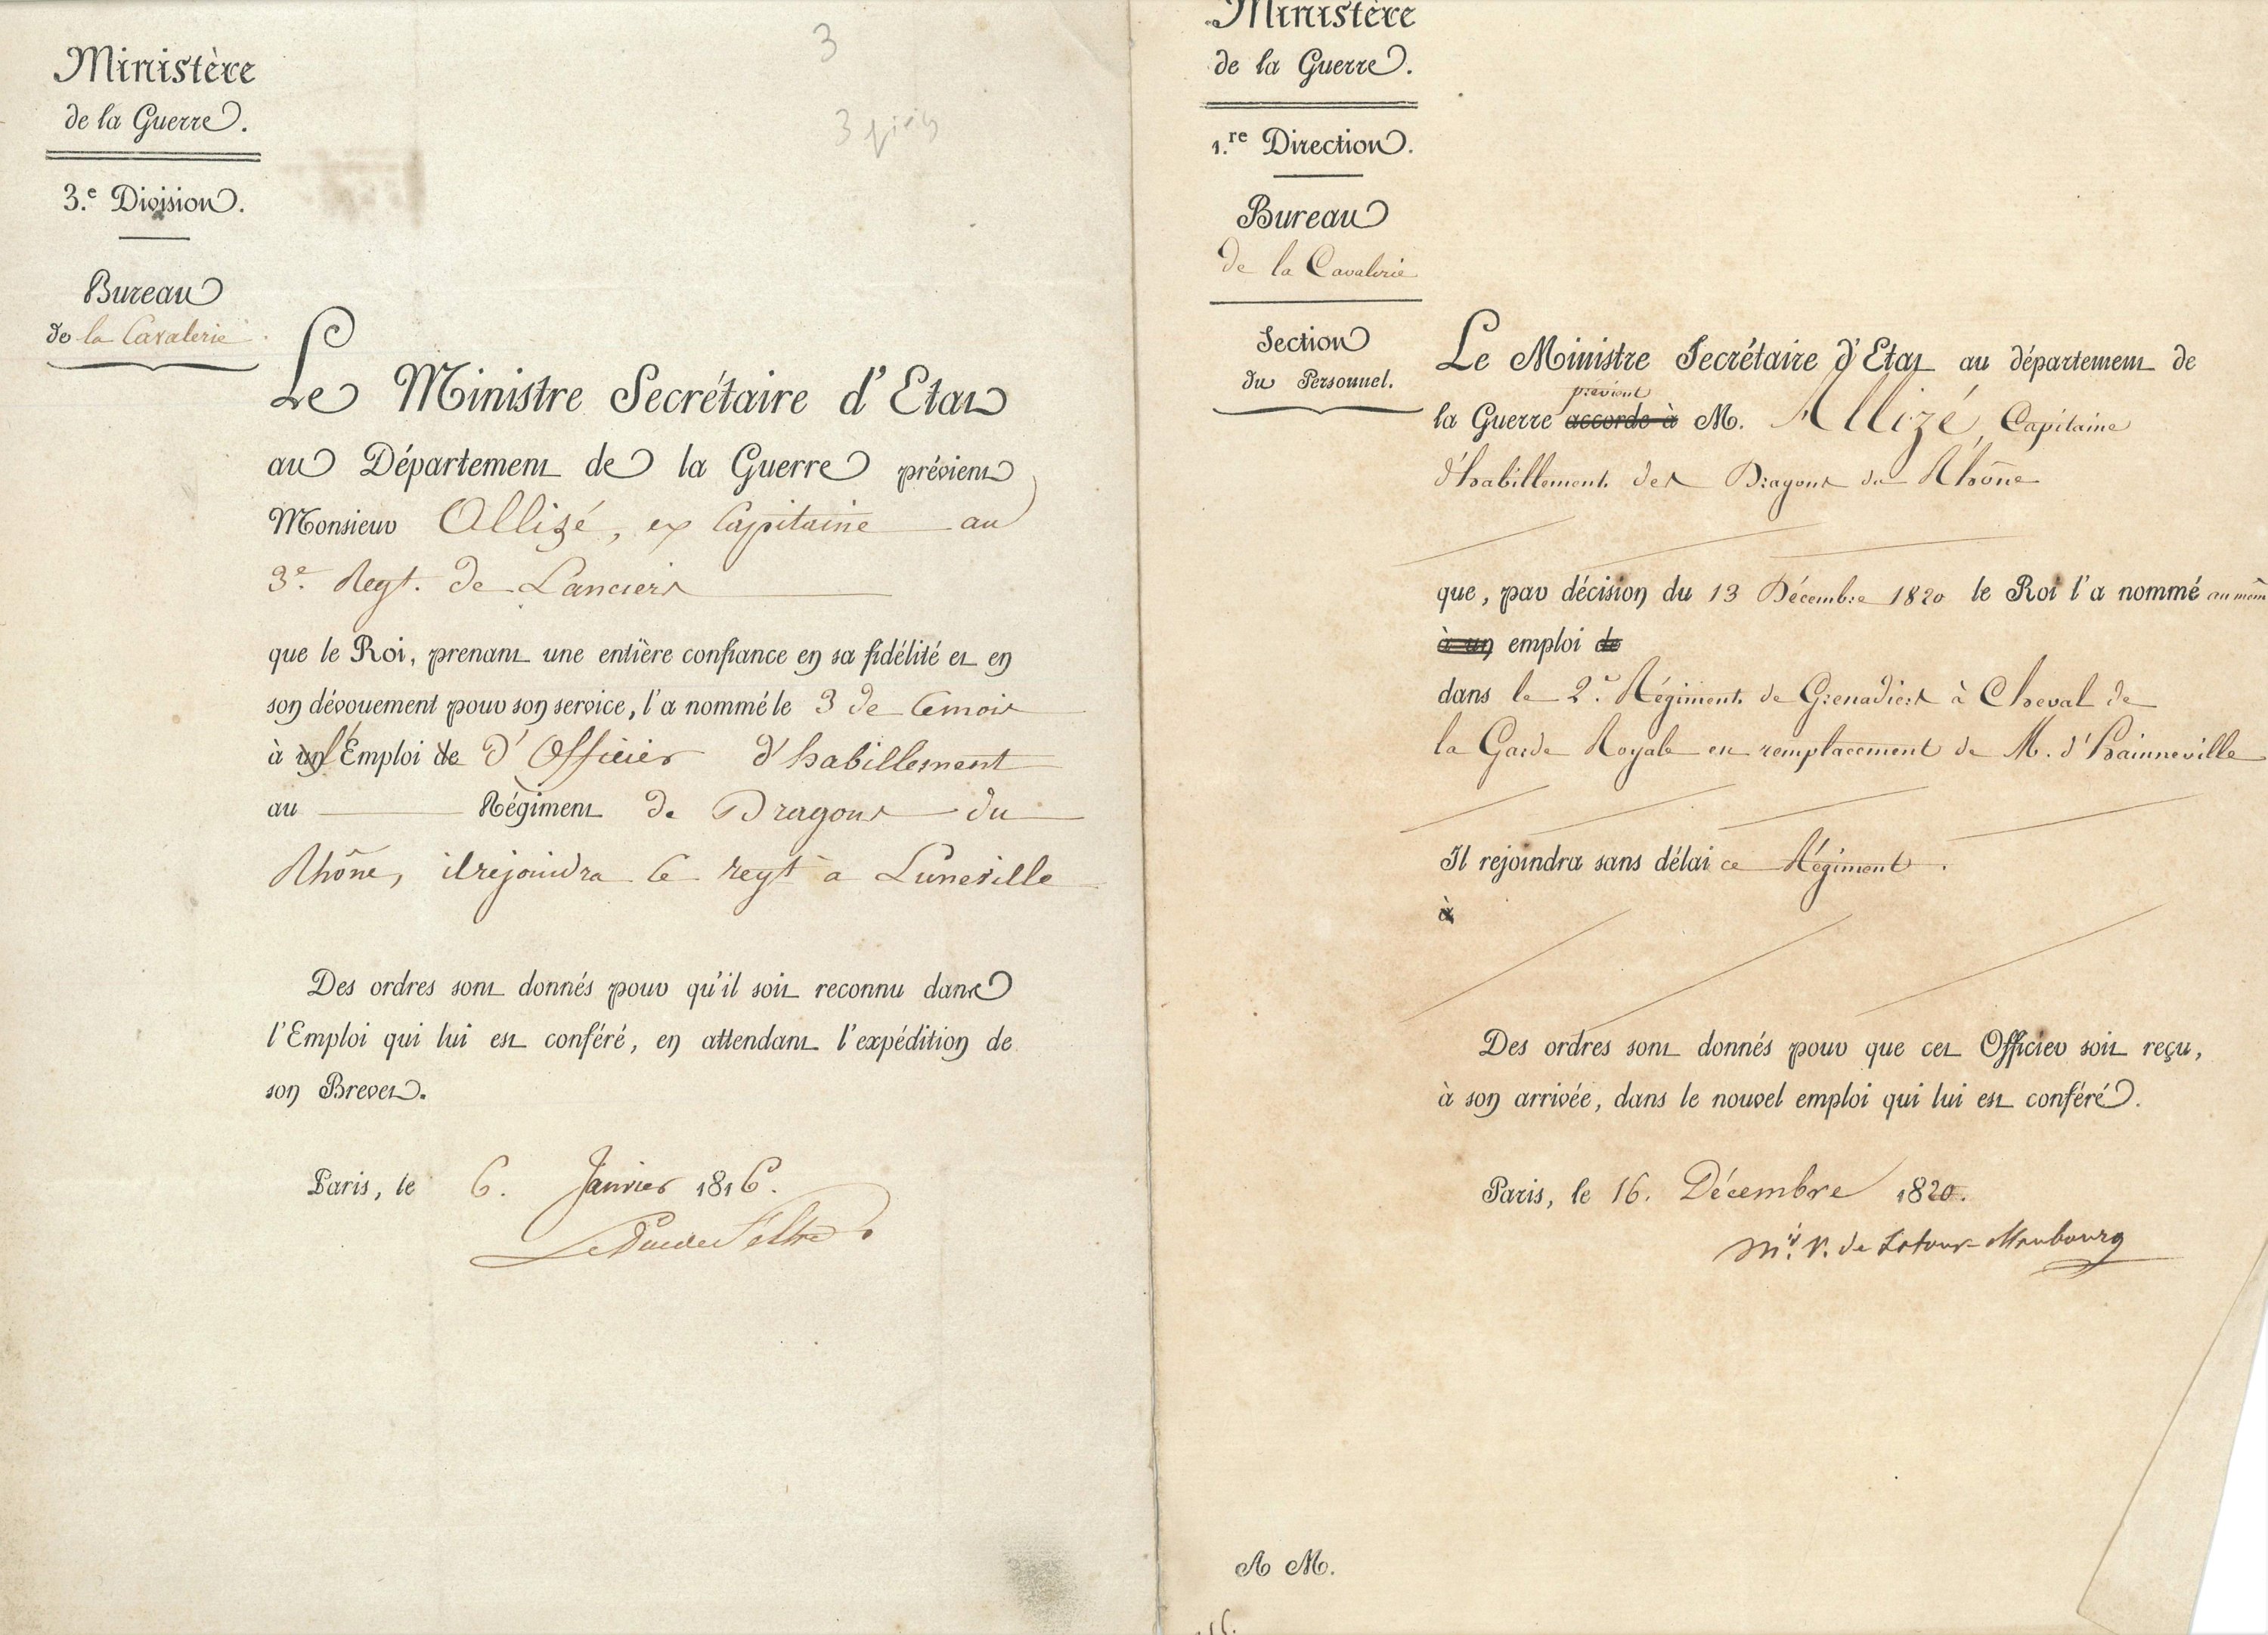 3
Ministère
de la Guerre.
3.e Division.
Bureau
de la Cavalerie
Le Ministre Secrétaire d'Etat
au Département de la Guerre prévient
Monsieur Allizé, ex Capitaine au
3e. Regt. de Lanciers
que le Roi, prenant une entière confiance en sa fidélité et en
son dévouement pour son service, l'a nommé le 3 de Cemois
à un l'Emploi de d'Officier d'habillement
au Régiment de Dragons du
Rhône, il rejoindra Ce regt à Luneville
Des ordres sont donnés pour qu'il soit reconnu dans
l'Emploi qui lui est conféré, en attendant l'expédition de
son Brevet.
Paris, le 6. Janvier 1816.
Le Duc de Feltre
Ministère
de la Guerre.
1.re Direction.
Bureau
de la Cavalerie
Section
du Personnel.
Le Ministre Secrétaire d'Etat au département de
prévient
la Guerre accorde à M. Allizé, Capitaine
d'habillement des Dragons du Rhône
que, par décision du 13 Décembre 1820 le Roi l'a nommé au mêm
à un emploi de
dans le 2e. Régiment de Grenadiers à Cheval de
la Garde Royale en remplacement de M. d'hainneville
Il rejoindra sans délai ce Régiment.
à
Des ordres sont donnés pour que cet Officier soit reçu,
à son arrivée, dans le nouvel emploi qui lui est conféré.
Paris, le 16. Décembre 1820.
Mis. V. de Latour-Maubourg
A M.